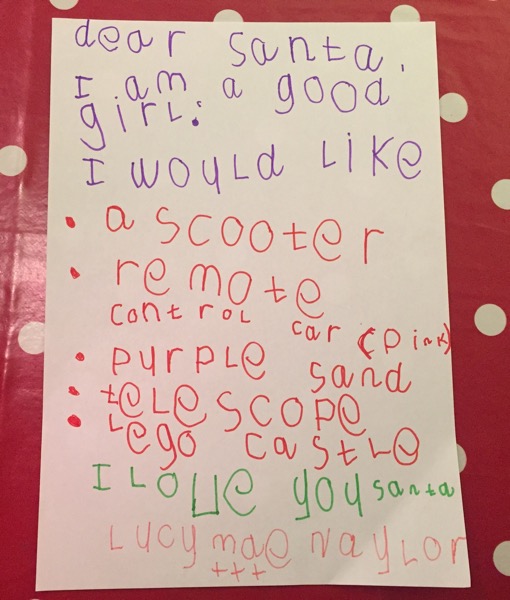 dear santa.
I am a good
girl.
I would like
• a scooter
• remote
control car (pink)
• purple sand
• telescope
• Lego castle
I love you santa
Lucy mae Naylor
+++